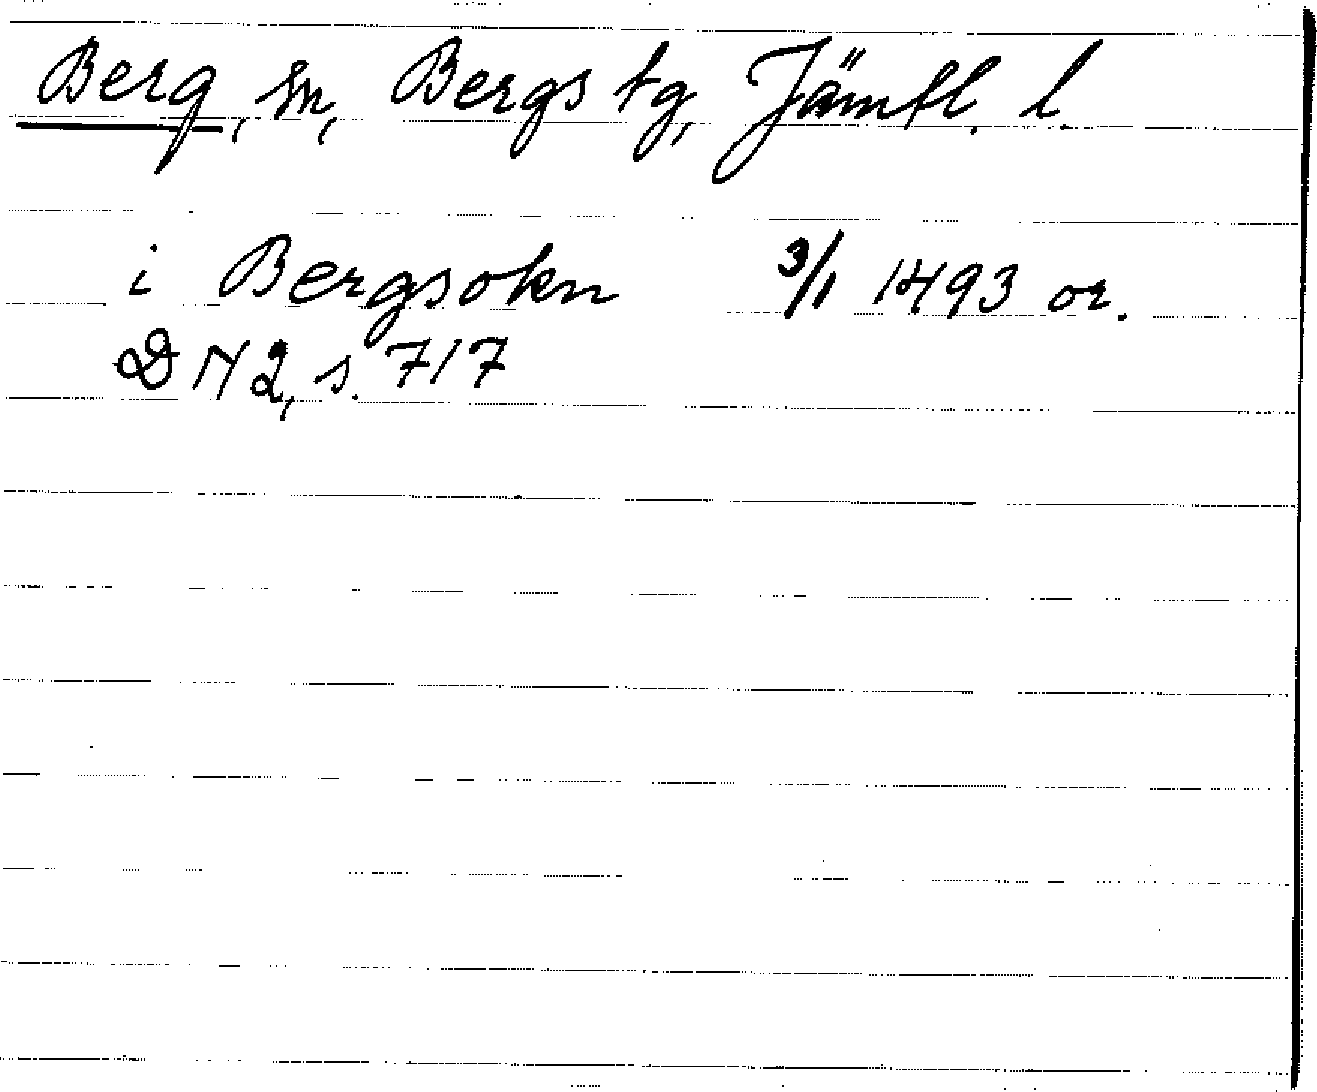 Berg, sn, Bergs tg, Jämtl. l.
i Bergsokn 3/1 1493 or.
DN 2, s. 717